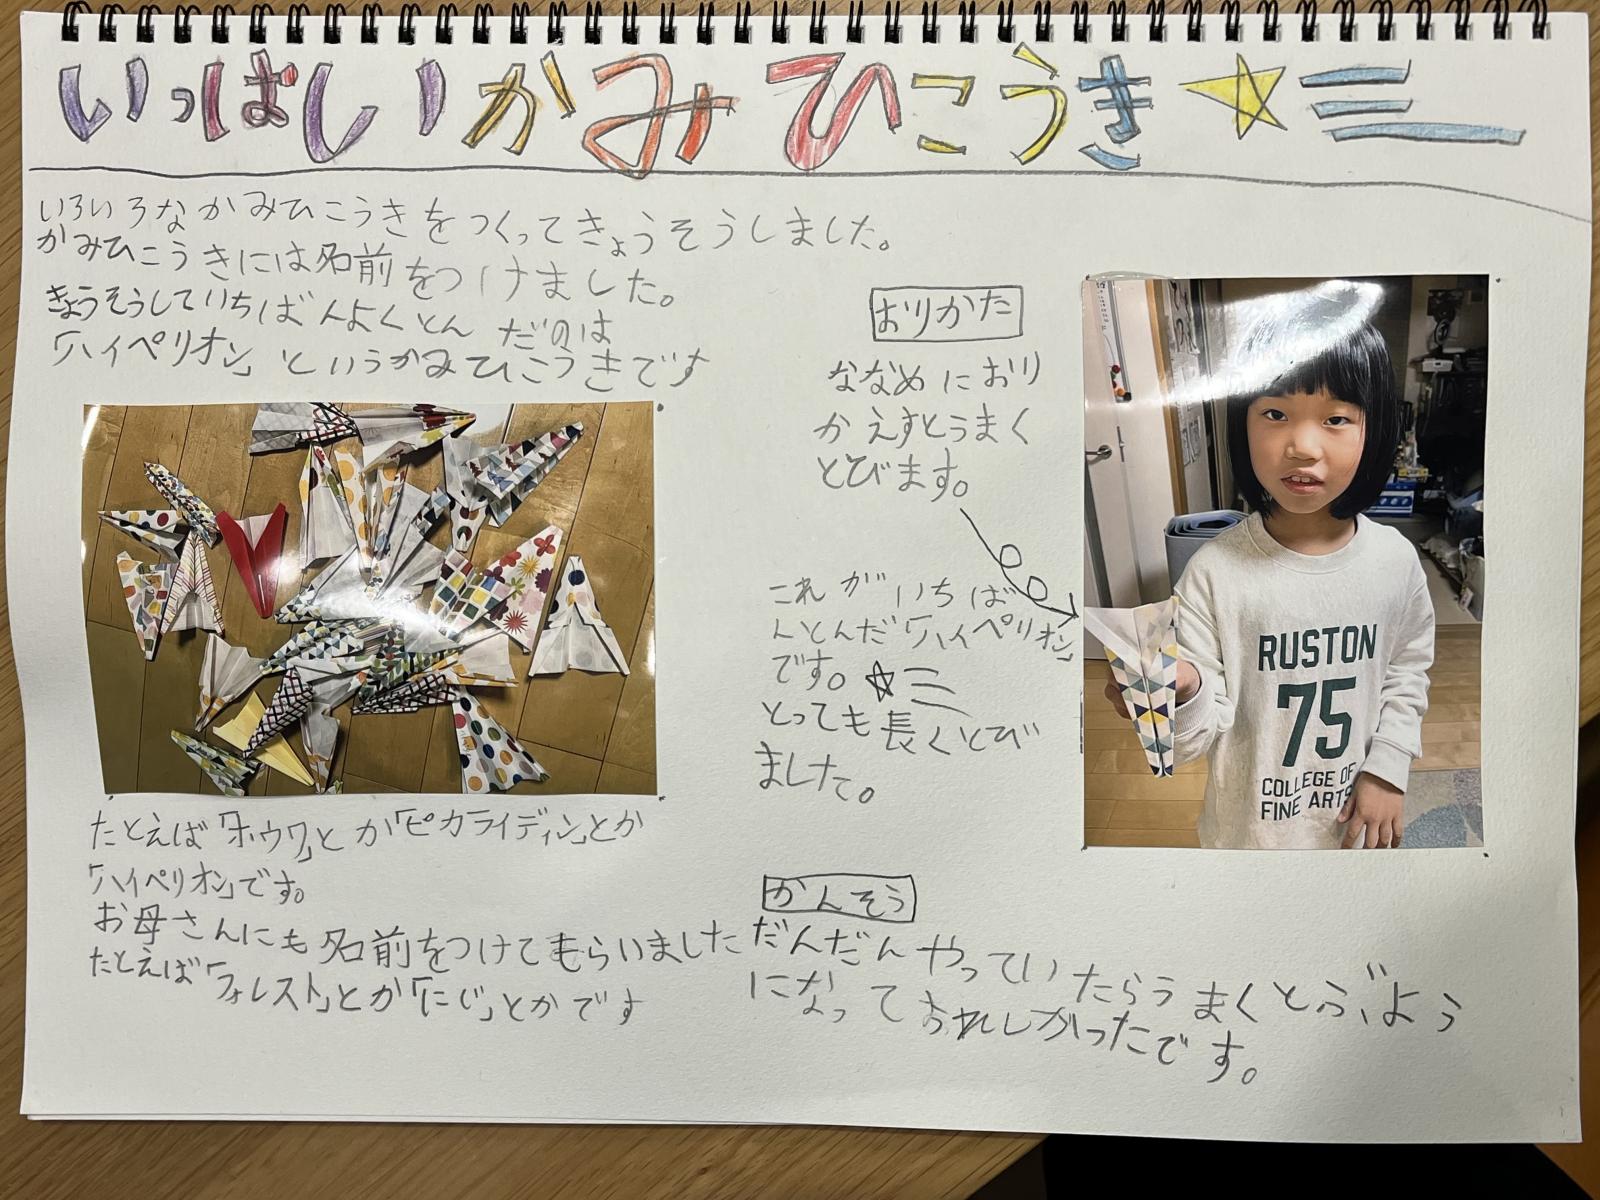 いっぱいかみひこうき
いろいろなかみひこうきをつくってきょうそうしました。
かみひこうきには名前をつけました。
きょうそうしていちばんよくとんだのは
「ハイペリオン」というかみひこうきです
たとえば「ホウワ」とか「ピカライディン」とか
「ハイペリオン」です。
お母さんにも名前をつけてもらいました
たとえば「フォレスト」とか「にじ」とかです
おりかた
ななめにおり
かえすとうまく
とびます。
これがいちば
んとんだ「ハイペリオン」
です。
とっても長くとび
ました。
RUSTON
75
COLLEGE OF
FINE ARTS
かんそう
だんだんやっていたらうまくとぶよう
になってうれしかったです。